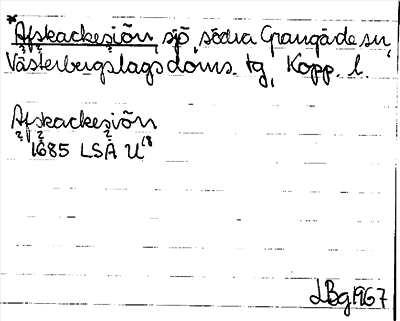 *Afskackesiõn, sjö, södra Grangärde sn,
Västerbergslags doms. tg, Kopp. l.
Afskackesiõn
? ? ?
1685 LSA U18
LBg 1967